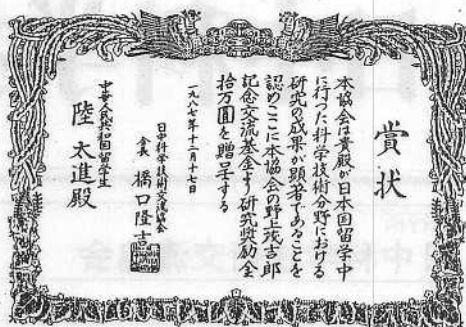 賞状
本協会は貴殿が日本国留学中
に行つた科学技術分野における
研究の成果が顕著であることを
認めここに本協会の野上茂吉郎
記念交流基金より研究奨励金
拾万圓を贈呈する
一九八七年十二月十七日
日中科学技術交流協会
会長 橋口隆吉
中華人民共和国留学生
陸太進殿